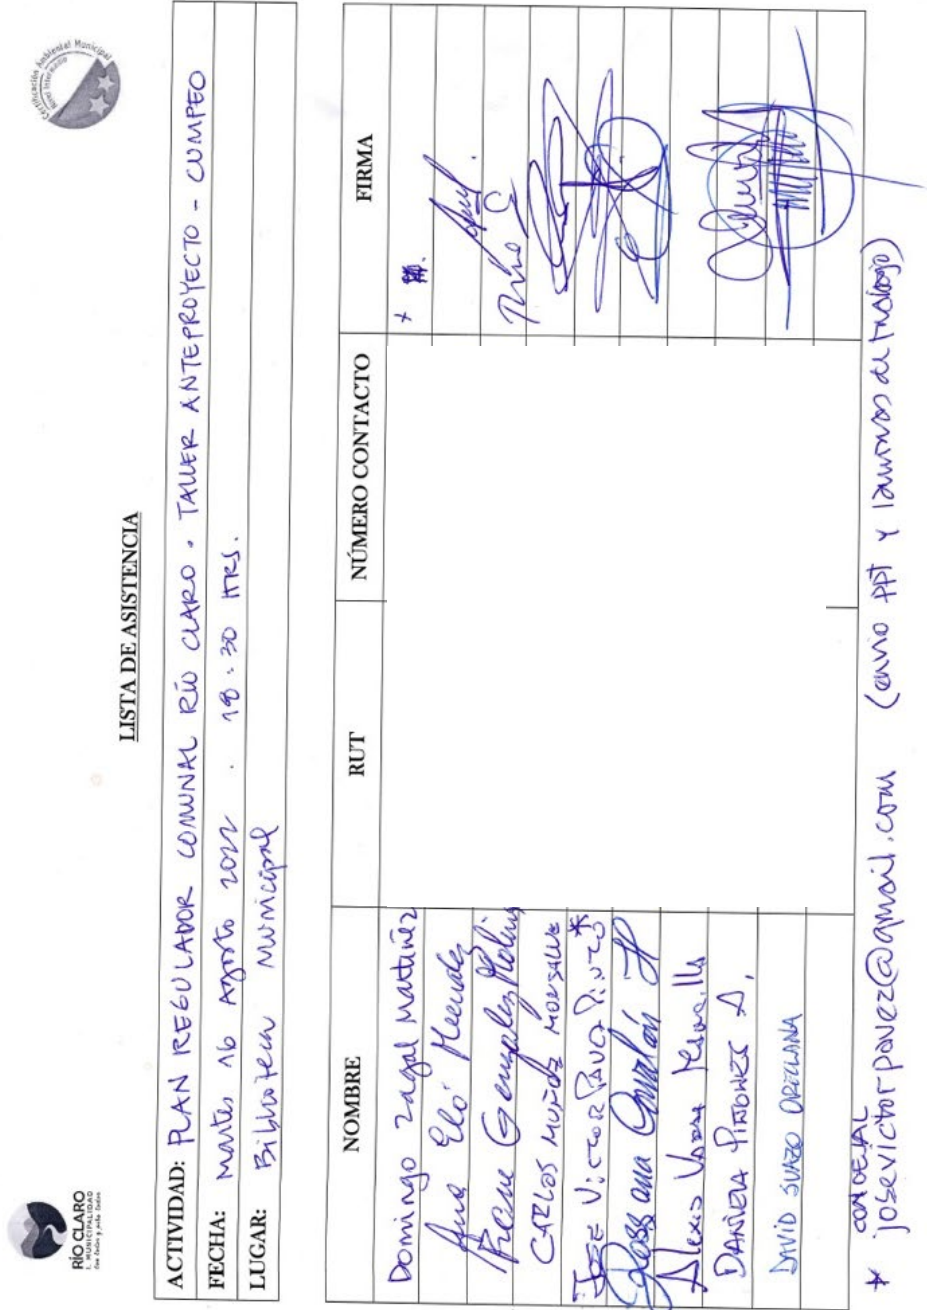 RÍO CLARO
I. MUNICIPALIDAD
Certificación Ambiental Municipal
LISTA DE ASISTENCIA
ACTIVIDAD: PLAN REGULADOR COMUNAL RÍO CLARO - TALLER ANTEPROYECTO - CUMPEO
FECHA: Martes 16 Agosto 2022 . 18:30 HRS.
LUGAR: Biblioteca Municipal
NOMBRE RUT NÚMERO CONTACTO FIRMA
Domingo Zagal Martinez
Ana Eló Mendez
Rene Gonzalez Molina
CARLOS MUÑOZ MONSALVE
JOSE VICTOR PAVEZ PINTO *
Rossana
Alexis
DANIELA PINTONES A.
DAVID SUAZO ORELLANA
* CONCEJAL
josevictorpavez@gmail.com (envio PPT y laminas de trabajo)